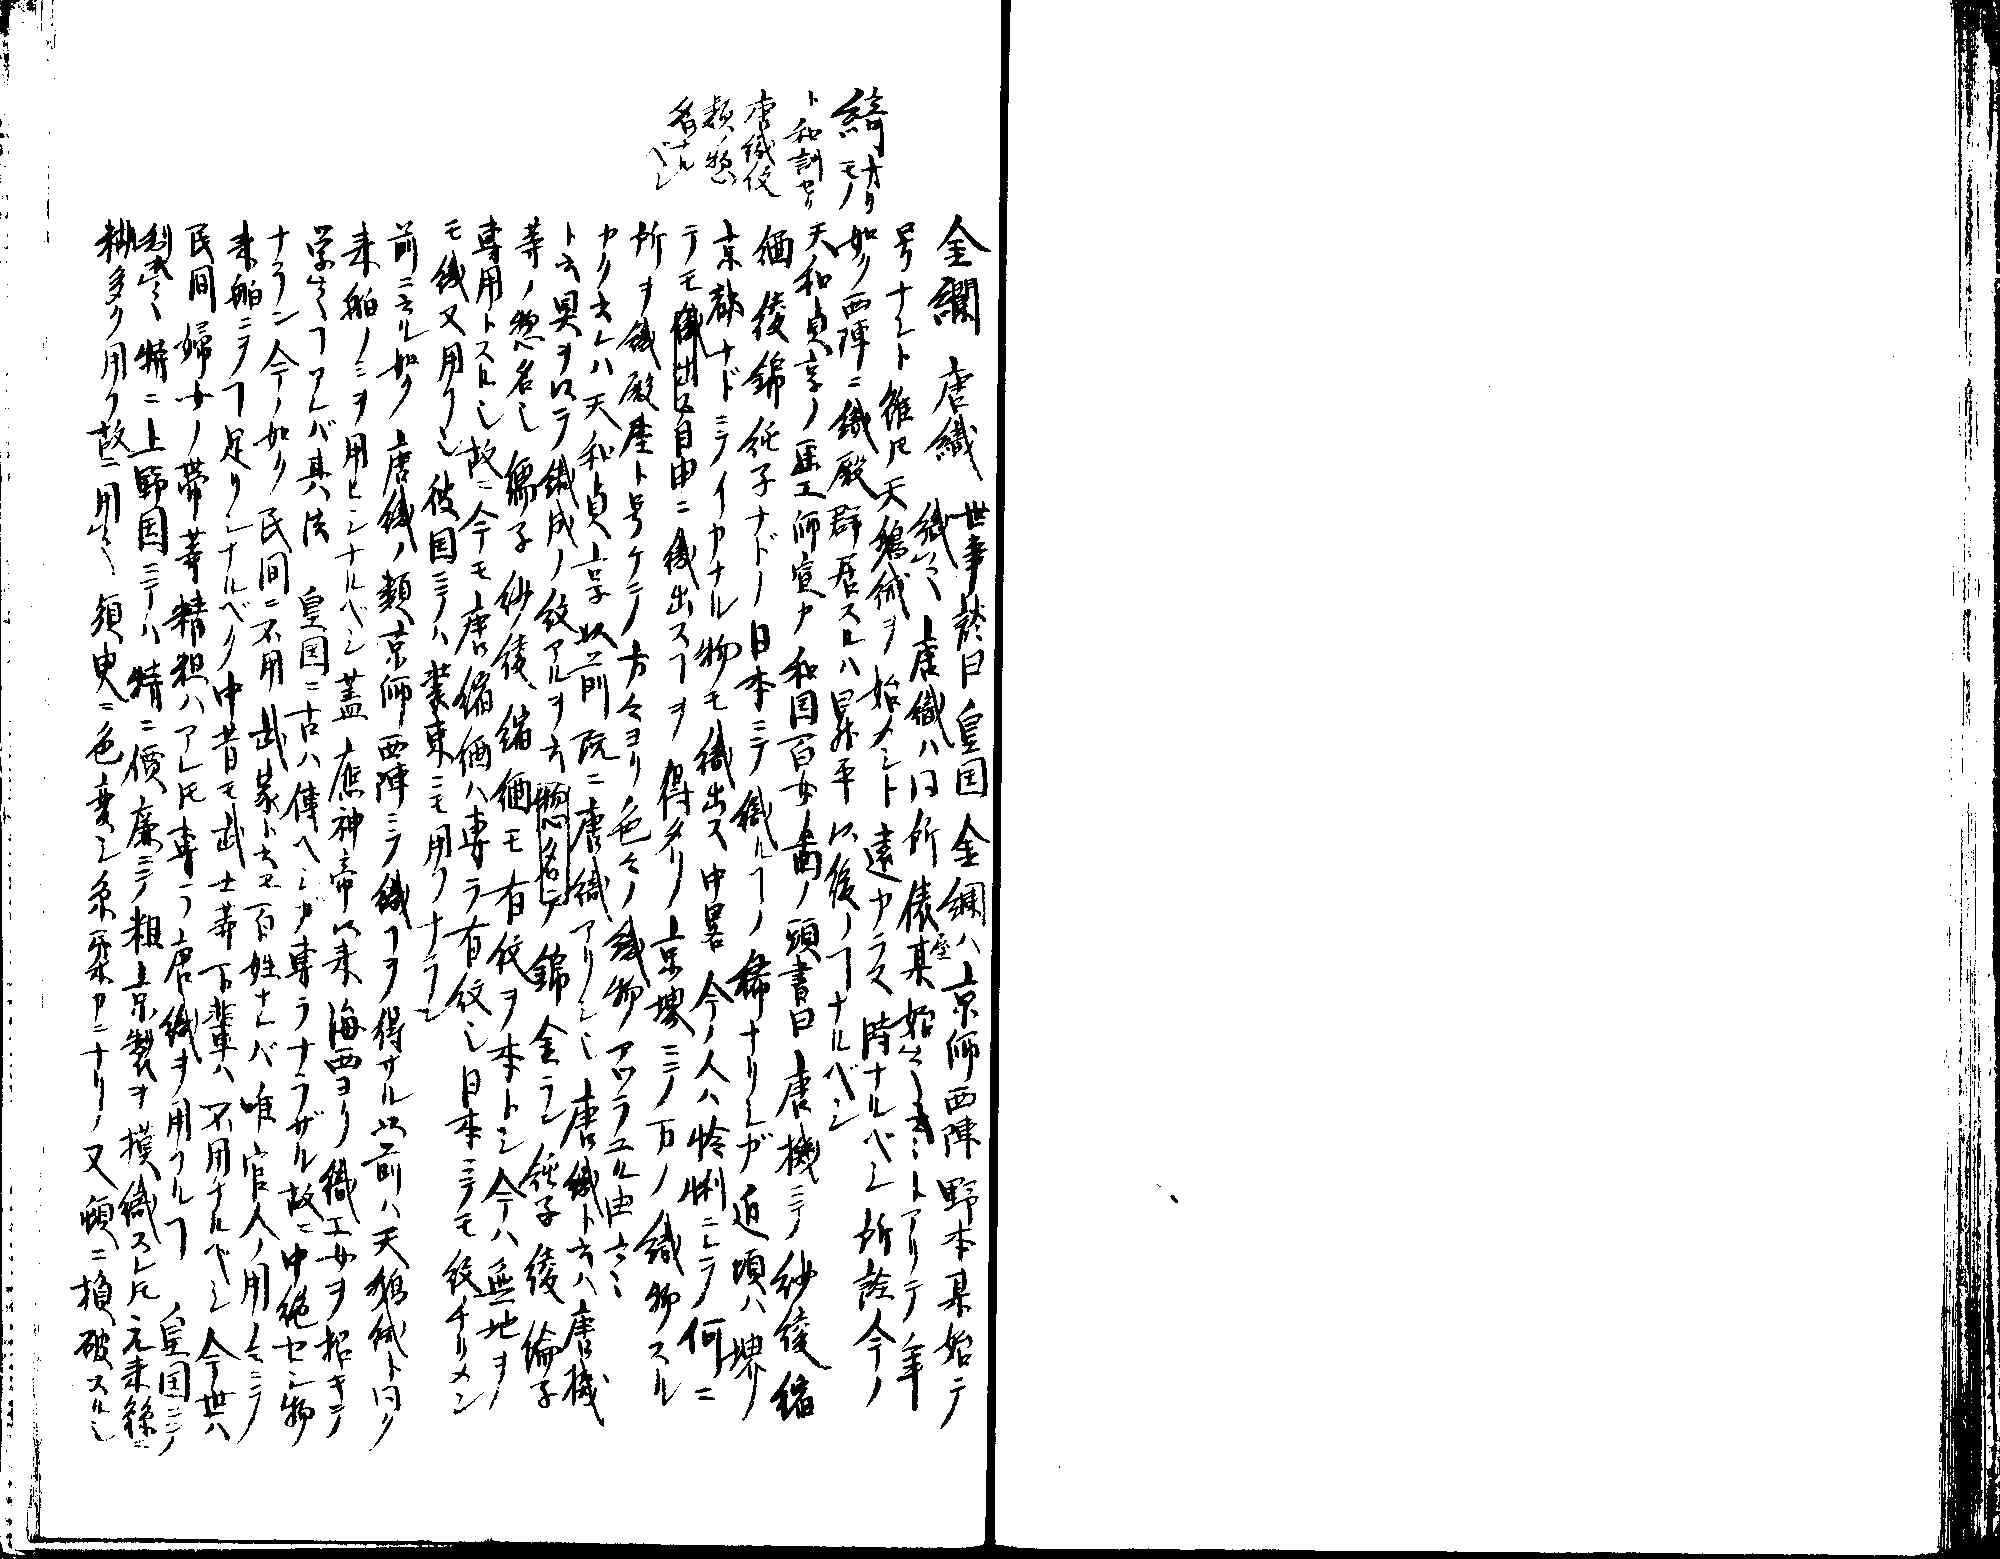 綺 オリモノ
ト和訓セリ
唐織伎
類ノ惣
名ナル
ベシ
金襴 唐織 世事談曰 皇国 金襴ハ京師西陣野本某始テ
織之 唐織ハ同所俵屋某始之トアリテ年
号ナシト雖ドモ天鵝絨ヲ始メシト遠カラズ時ナルベシ所詮今ノ
如ク西陣ニ織殿群居スルハ昇平以後ノコナルベシ
天和貞享ノ画工師宣ガ和国百女ノ頭書曰唐機ニテ紗綾縮
緬綾錦純子ナドノ日本ニテ織ルコノ稀ナリシガ近頃ハ堺
京都ナドニテイカナル物モ織出ス中畧今ノ人ハ怜悧ニシテ何ニ
テモ自由ニ織出スコヲ得タリ京堺ニテ万ノ織物スル
所ヲ織殿屋ト号ケテ方々ヨリ色々ノ織物アツラユル由云々
カク云レハ天和貞享以前既ニ唐織アリシ也唐織ト云ハ唐機
ト云具ヲ以テ織成ノ紋アルヲ云惣名ニテ錦金ラン純子綾綸子
等ノ惣名也 繻子紗綾縮緬モ有紋ヲ本トシ今ハ無地ヲ
専用トスル也故ニ今モ唐縮緬ハ専ラ有紋也日本ニテモ紋チリメン
モ織又用フ也彼国ニテハ装束ニモ用フナラン
前ニ云ル如ク唐織ノ類京師西陣ニテ織コヲ得サル以前ハ天鵝絨ト同ク
来舶ノミヲ用ヒシナルベシ蓋應神帝以来海西ヨリ織工女ヲ招キテ
学之コアレバ其法 皇国ニ古ハ傳ヘシガ専ラナラザル故ニ中絶セシ物
ナラン今ノ如ク民間ニ不用武家ト云モ百姓ナレバ唯官人ノ用ノミニテ
来舶ニヲコ足リシナルベク中昔モ武士等下輩ハ不用ナルベシ今世ハ
民間婦女ノ帯等精粗ハアレドモ専ラ唐織ヲ用フルコ 皇国ニテ
製之 特ニ上野国ニテハ精ニ價廉ニテ粗上京製ヲ模織スレドモ元来絲ニ
糊多ク用フ故ニ用之 須臾ニ色変シ糸弱カニナリ又頓ニ損破スル也